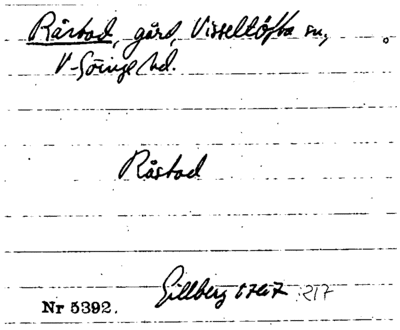 Råstad, gård, Visseltofta sn,
V-Göinge hd.
Råstad
Gillberg 1767 217
Nr 5392.